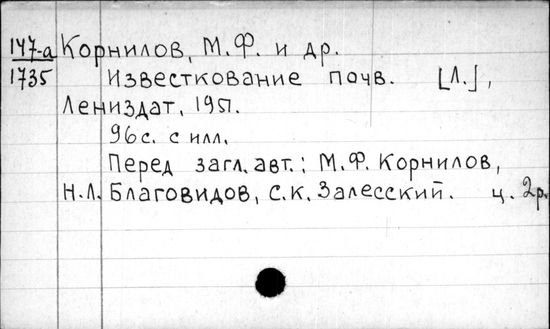 147-а Корнилов, М.Ф. и др.
1735 Известкование почв. [Л.],
Лениздат, 1951.
96с. с илл.
Перед загл. авт.: М.Ф. Корнилов,
Н.Л. Благовидов, С.К. Залесский. ц. 2р.